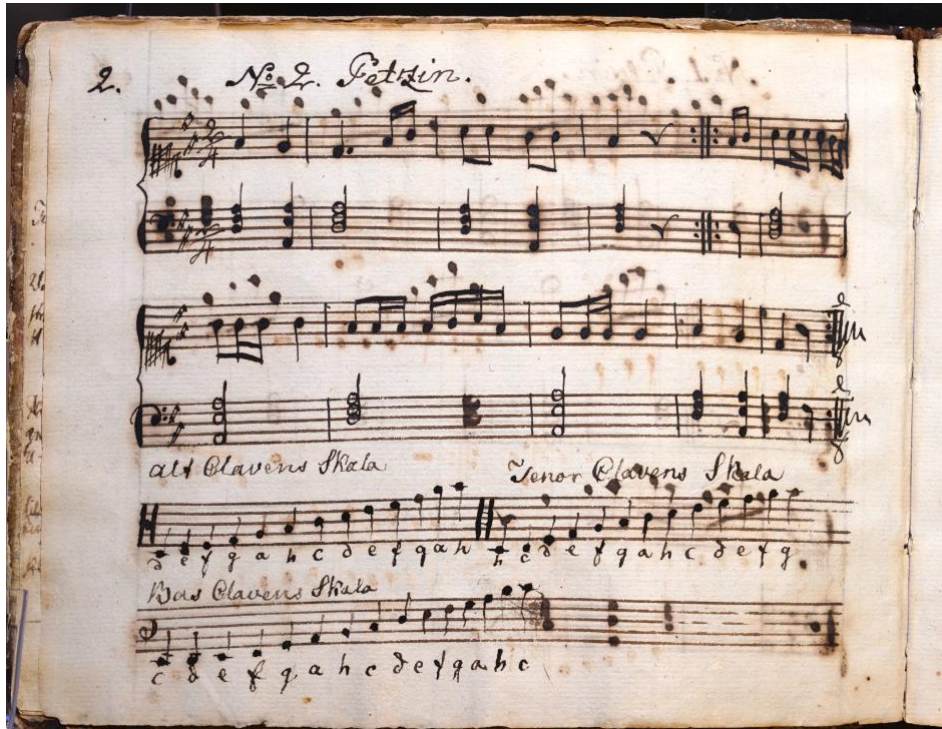 2. No 2. Fetzin.
2/4
2/4
alt Clavens Skala Tenor Clavens Skala
d e f g a h c d e f g a h h c d e f g a h c d e f g.
Bas Clavens Skala
c d e f g a h c d e f g a h c